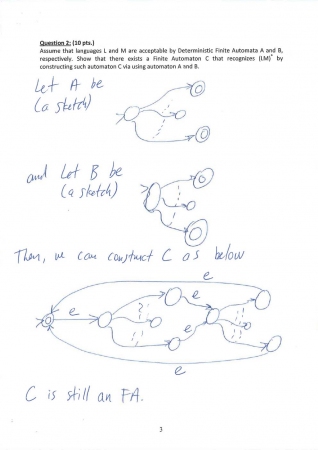 Question 2: (10 pts.)
Assume that languages L and M are acceptable by Deterministic Finite Automata A and B,
respectively. Show that there exists a Finite Automaton C that recognizes (LM)* by
constructing such automaton C via using automaton A and B.
Let A be
(a sketch)
and Let B be
(a sketch)
Then, we can construct C as below
e
e
e
e
e
C is still an FA.
3